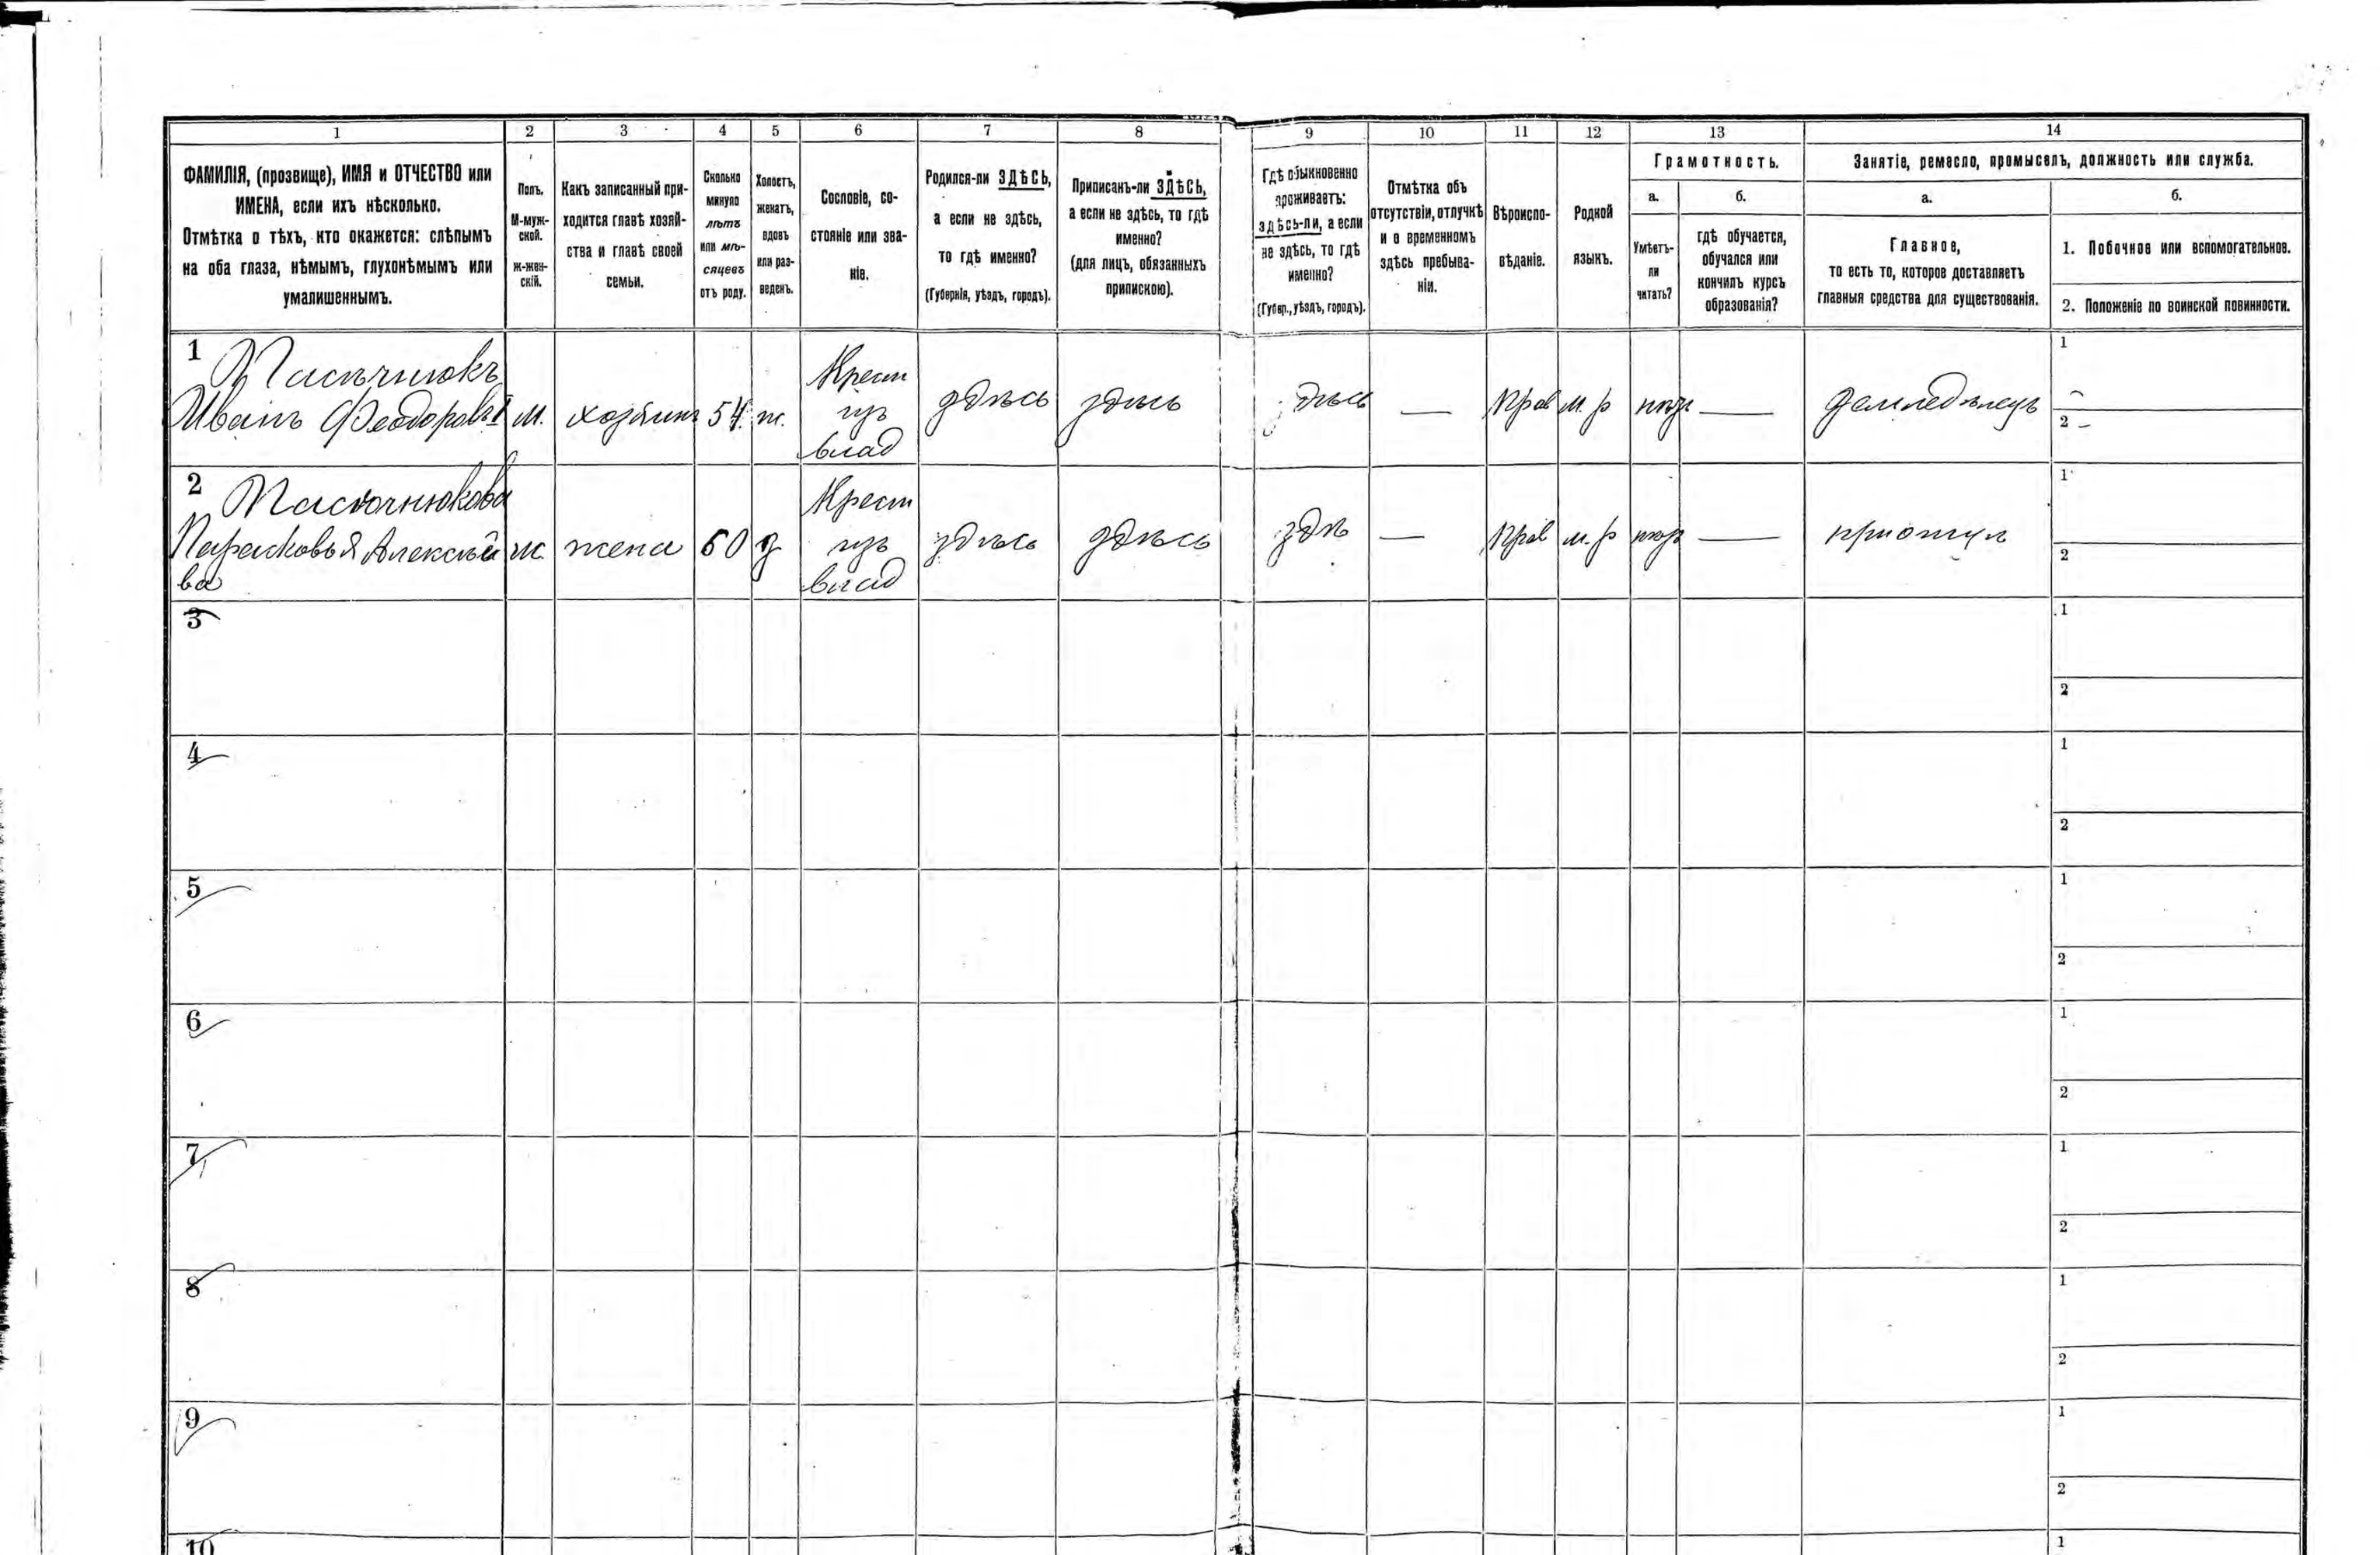 1 2 3 4 5 6 7 8 9 10 11 12 13 14
ФАМИЛІЯ, (прозвище), ИМЯ и ОТЧЕСТВО или
ИМЕНА, если ихъ нѣсколько.
Отмѣтка о тѣхъ, кто окажется: слѣпымъ
на оба глаза, нѣмымъ, глухонѣмымъ или
умалишеннымъ.
Полъ.
М-муж-
ской.
ж-жен-
скій.
Какъ записанный при-
ходится главѣ хозяй-
ства и главѣ своей
семьи.
Сколько
минуло
лѣтъ
или мѣ-
сяцевъ
отъ роду.
Холостъ,
женатъ,
вдовъ
или раз-
веденъ.
Сословіе, со-
стояніе или зва-
ніе.
Родился-ли ЗДѢСЬ,
а если не здѣсь,
то гдѣ именно?
(Губернія, уѣздъ, городъ).
Приписанъ-ли ЗДѢСЬ,
а если не здѣсь, то гдѣ
именно?
(для лицъ, обязанныхъ
припискою).
Гдѣ обыкновенно
проживаетъ:
здѣсь-ли, а если
не здѣсь, то гдѣ
именно?
(Губер., уѣздъ, городъ).
Отмѣтка объ
отсутствіи, отлучкѣ
и о временномъ
здѣсь пребыва-
ніи.
Вѣроиспо-
вѣданіе.
Родной
языкъ.
Грамотность.
а.
Умѣетъ-
ли
читать?
б.
гдѣ обучается,
обучался или
кончилъ курсъ
образованія?
Занятіе, ремесло, промыселъ, должность или служба.
а.
Главное,
то есть то, которое доставляетъ
главныя средства для существованія.
б.
1. Побочное или вспомогательное.
2. Положеніе по воинской повинности.
1
Пасѣчнюкъ
Иванъ Феодоровъ
м.
хозяинъ
54
ж.
Крест
изъ
влад
здѣсь
здѣсь
здѣсь
—
прав
м. р
—
земледѣлецъ
1
2 -
2
Пасѣчнюкова
Парасковья Алексѣе
ва
ж
жена
60
з
Крест
изъ
влад
здѣсь
здѣсь
здѣ
—
прав
м. р
—
1
2
3
1
2
4
1
2
5
1
2
6
1
2
7
1
2
8
1
2
9
1
2
10
1